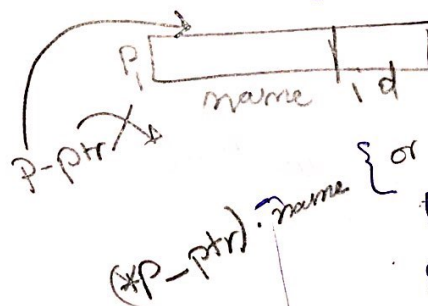 P1
name id
p-ptr
(*p_ptr).name { or